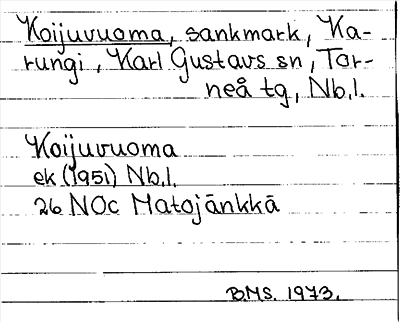 Koijuvuoma, sankmark, Ka-
rungi, Karl Gustavs sn, Tor-
neå tg, Nb.l.
Koijuvuoma
ek (1951) Nb.l.
26 NOc Matojänkkä
B.M.S. 1973.